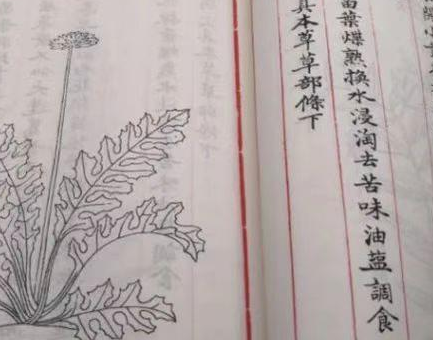 苗葉煠熟換水浸淘去苦味油鹽調食
具本草草部條下